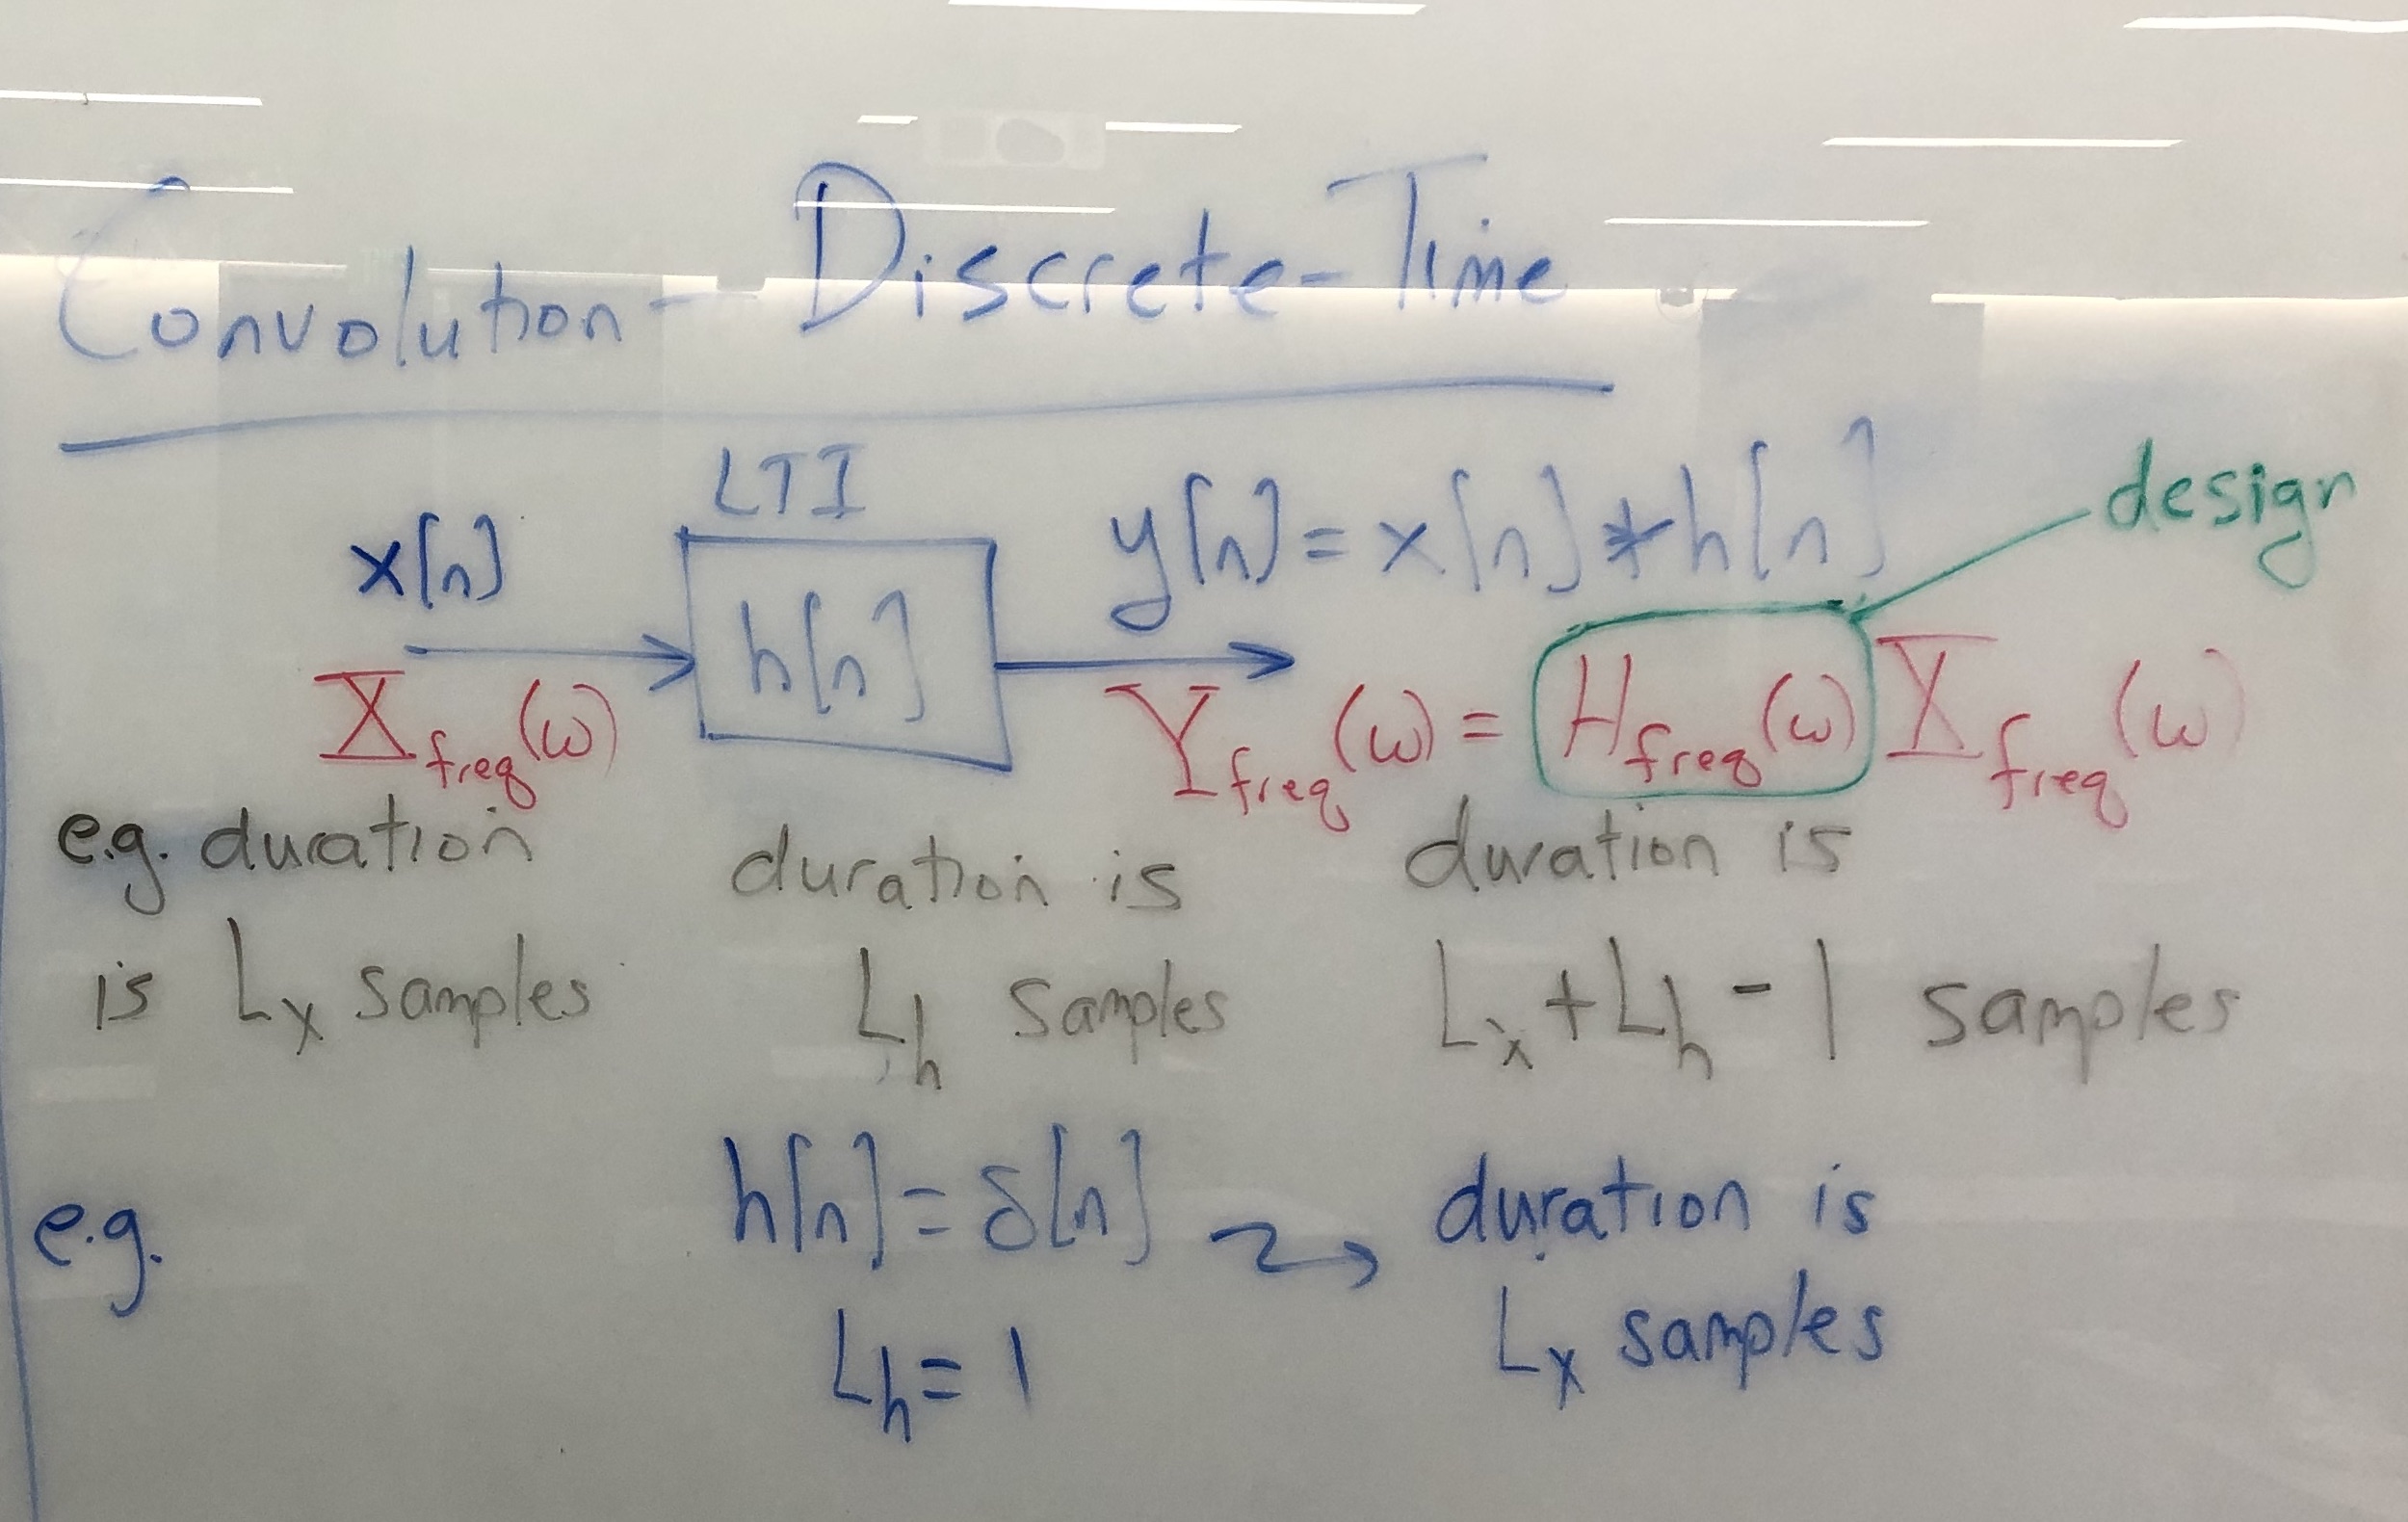 Convolution - Discrete-Time
LTI
design
x[n]
h[n]
y[n] = x[n] * h[n]
X_freq(ω)
Y_freq(ω) = H_freq(ω) X_freq(ω)
e.g. duration
is L_x samples
duration is
L_h samples
duration is
L_x + L_h - 1 samples
e.g.
h[n] = δ[n]
L_h = 1
duration is
L_x samples